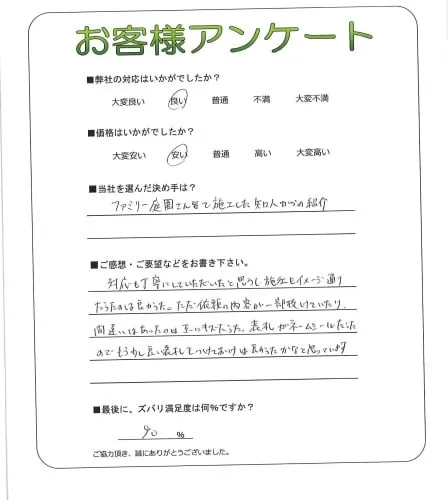 お客様アンケート
■弊社の対応はいかがでしたか?
大変良い 良い 普通 不満 大変不満
■価格はいかがでしたか?
大変安い 安い 普通 高い 大変高い
■当社を選んだ決め手は?
ファミリー庭園さんで施工した知人からの紹介
■ご感想・ご要望などをお書き下さい。
対応も丁寧にしていただいたと思うし施工もイメージ通り
だったのは良かった。ただ依頼の内容が一部抜けていたり、
間違いはあったのは 表札がネームシールだった
のでもう少し良い表札をつけておけば良かったかなと思っています
■最後に、ズバリ満足度は何%ですか?
90 %
ご協力頂き、誠にありがとうございました。